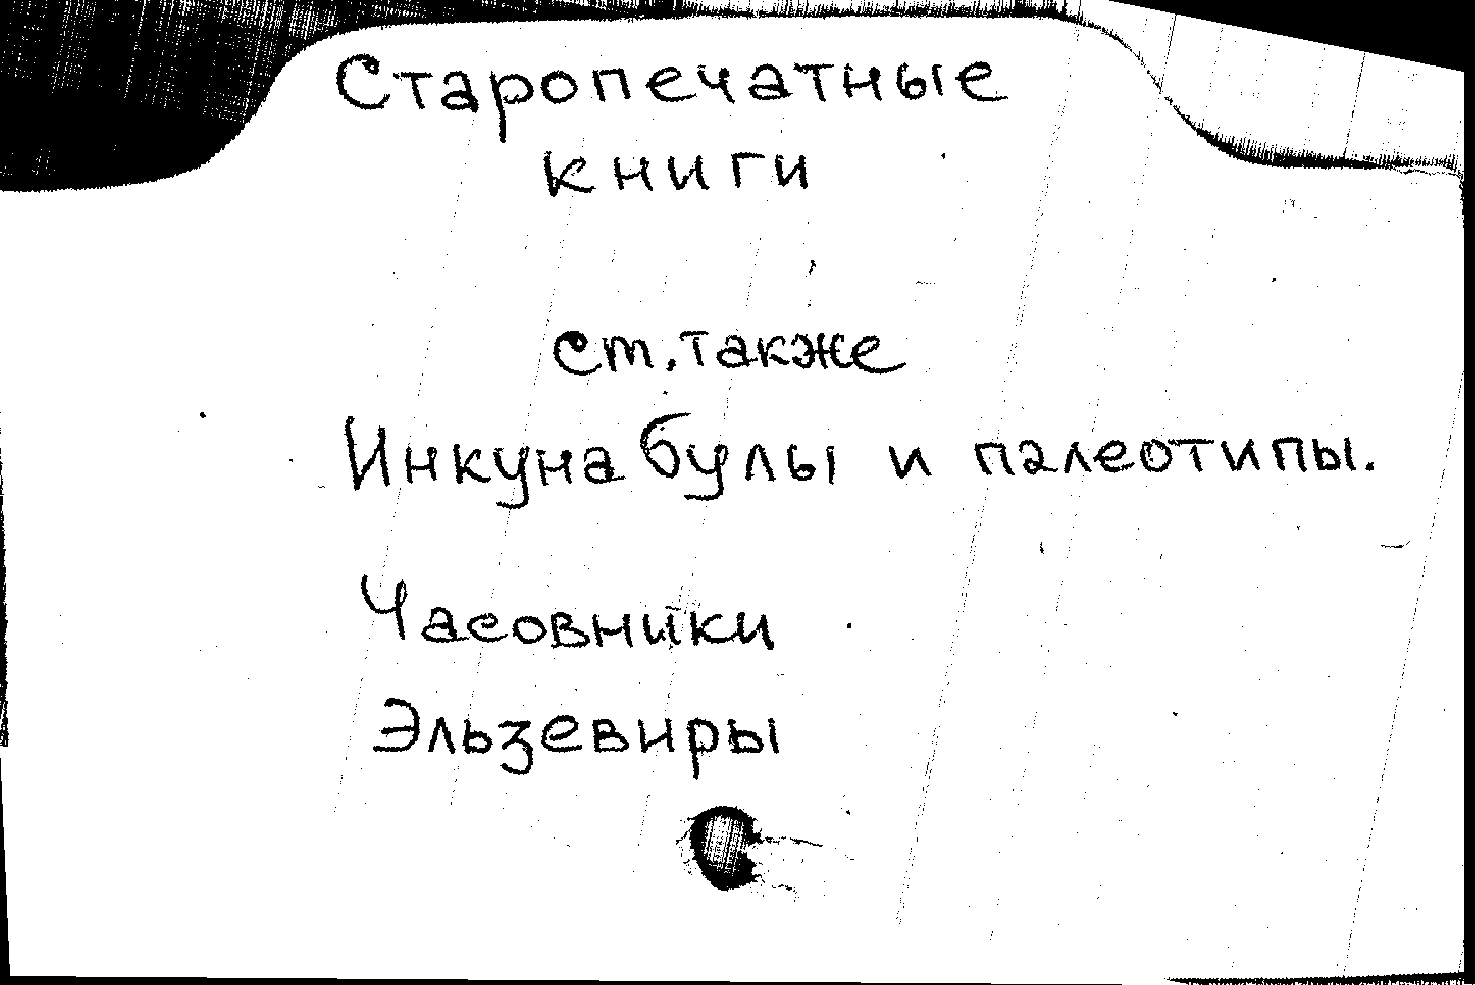 Старопечатные
книги
см. также
Инкунабулы и палеотипы.
Часовники
Эльзевиры